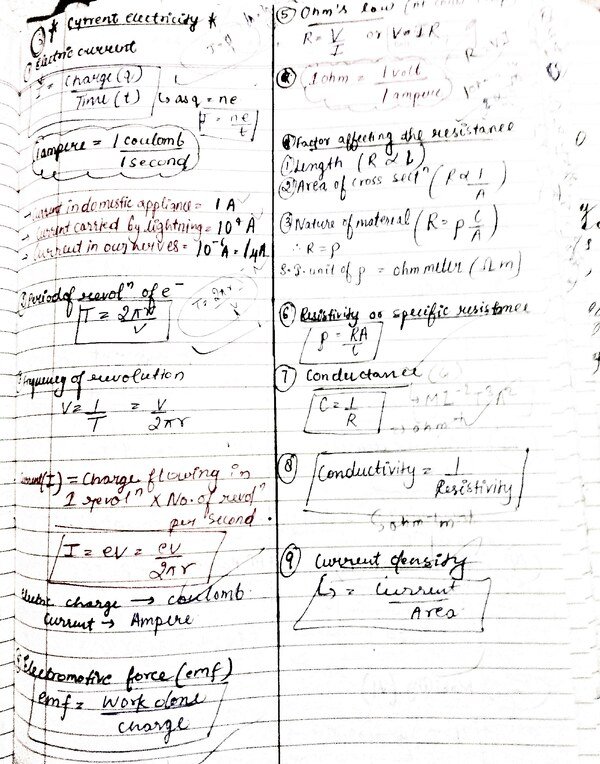 * Current electricity *
① Electric current
I = Charge (q) / Time (t)
↳ as q = ne
I = ne / t
1 ampere = 1 coulomb / 1 second
→ Current in domestic appliance = 1 A
→ Current carried by lightning = 10⁴ A
→ Current in our nerves = 10⁻⁶ A = 1 μA
Period of revolⁿ of e⁻
T = 2πr / V
T = 2πr / V
frequency of revolution
V = 1 / T = V / 2πr
Current (I) = Charge flowing in
1 revolⁿ × No. of revolⁿ
per second.
I = eV = eV / 2πr
Electric charge → coulomb
Current → Ampere
Electromotive force (emf)
emf = Work done / charge
⑤ Ohm's law
R = V / I or V = IR
1 ohm = 1 volt / 1 ampere
Factor affecting the resistance
① Length (R ∝ L)
② Area of cross sectⁿ (R ∝ 1 / A)
③ Nature of material (R = ρ L / A)
∴ R = ρ
S.I. unit of ρ = ohm meter (Ω m)
⑥ Resistivity or specific resistance
ρ = RA / L
⑦ Conductance
C = 1 / R
→ ohm⁻¹
⑧ Conductivity = 1 / Resistivity
ohm⁻¹ m⁻¹
⑨ Current density
↳ = Current / Area